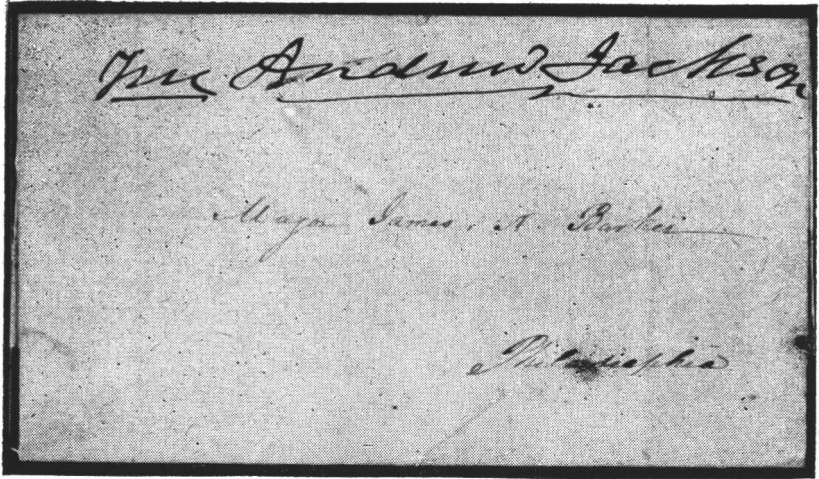 Free Andrew Jackson
Major James N. Barker
Philadelphia